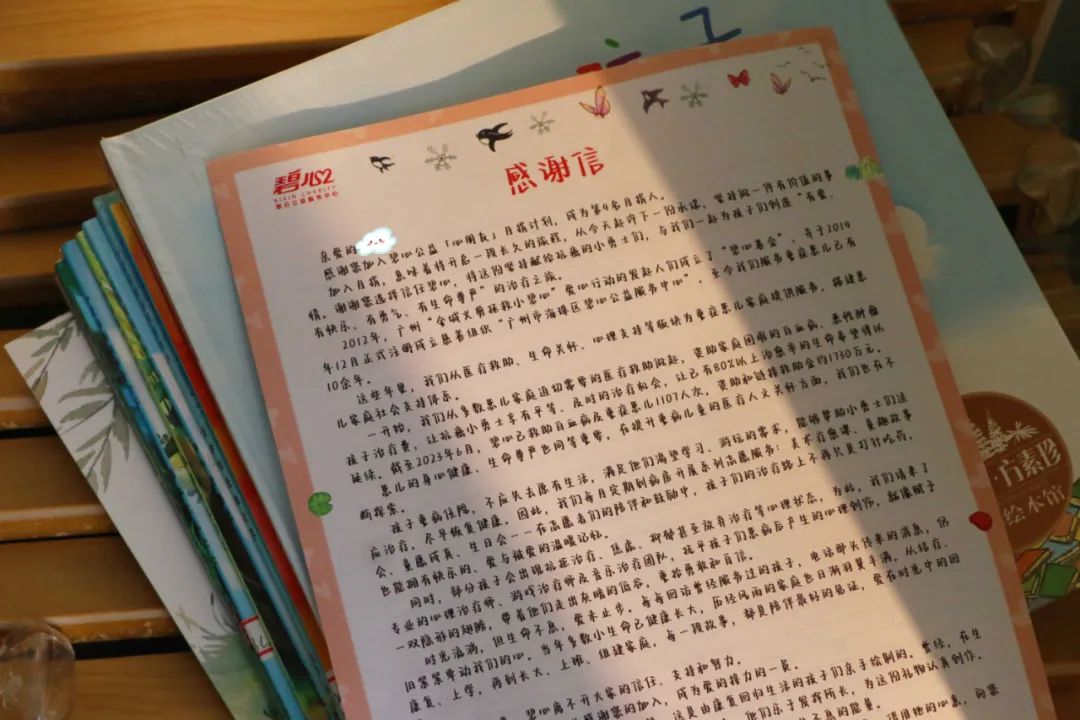 碧心
BIXIN CHARITY
碧心公益服务中心
感谢信
亲爱的
感谢您加入碧心公益「心朋友」月捐计划，成为第4名月捐人。
加入月捐，意味着将开启一段长久的旅程，从今天起许下一份承诺，坚持做一件有价值的事
情。谢谢您选择信任碧心，将这份坚持献给抗癌的小勇士们，与我们一起为孩子们创造“有爱、
有快乐、有勇气、有生命尊严”的治疗之旅。
2012年，广州“全城义剪拯救小碧心”爱心行动的发起人们成立了“碧心基金”，并于2014
年12月正式注册成立慈善组织“广州市海珠区碧心公益服务中心”，至今我们服务重症患儿已有
10余年。
这些年里，我们从医疗救助、生命关怀、心理支持等板块为重症患儿家庭提供服务，搭建患
儿家庭社会支持体系。
一开始，我们从多数患儿家庭迫切需要的医疗救助做起，资助家庭困难的白血病、恶性肿瘤
孩子治疗费，让抗癌小勇士享有平等、及时的治疗机会，让已有80%以上治愈率的生命希望得以
延续。截至2023年6月，碧心已救助白血病及重症患儿1107人次，资助和链接救助金约1730万元。
患儿的身心健康、生命尊严也同等重要，在提升重病儿童的医疗人文关怀方面，我们也在不
断探索。
孩子重病住院，不应失去原有生活，满足他们渴望学习、游玩的需求，能够帮助小勇士们适
应治疗，尽早恢复健康。因此，我们每月定期到病房开展系列志愿服务：美术疗愈课、童趣故事
会、童愿成真、生日会……在志愿者们的陪伴和鼓励中，孩子们的治疗路上不再只是打针吃药，
也能拥有快乐的、爱与被爱的温暖记忆。
同时，部分孩子会出现抗拒治疗、焦虑、抑郁甚至放弃治疗等心理状态，为此，我们请来了
专业的心理治疗师、游戏治疗师及音乐治疗团队，疏导孩子们患病后产生的心理创伤，就像赋予
一双隐形的翅膀，带着他们走出灰暗的低谷，重拾勇敢和自信。
时光滔滔，但生命不息，爱未止步。每每回访曾经服务过的孩子，电话那头传来的消息，仍
旧紧紧牵动我们的心。当年多数小生命已健康长大，历经风雨的家庭也日渐羽翼丰满。从结疗、
康复、上学，再到长大、上班、组建家庭，每一段故事，都是陪伴最好的见证，爱在时光中的回
碧心离不开大家的信任、支持和努力。
感谢您的加入，成为爱的接力的一员。
这是由康复回归生活的孩子们亲手绘制的。曾经，在生
他们乐于发挥所长，为这份礼物认真创作。
不息的能量。
方素珍
绘本馆